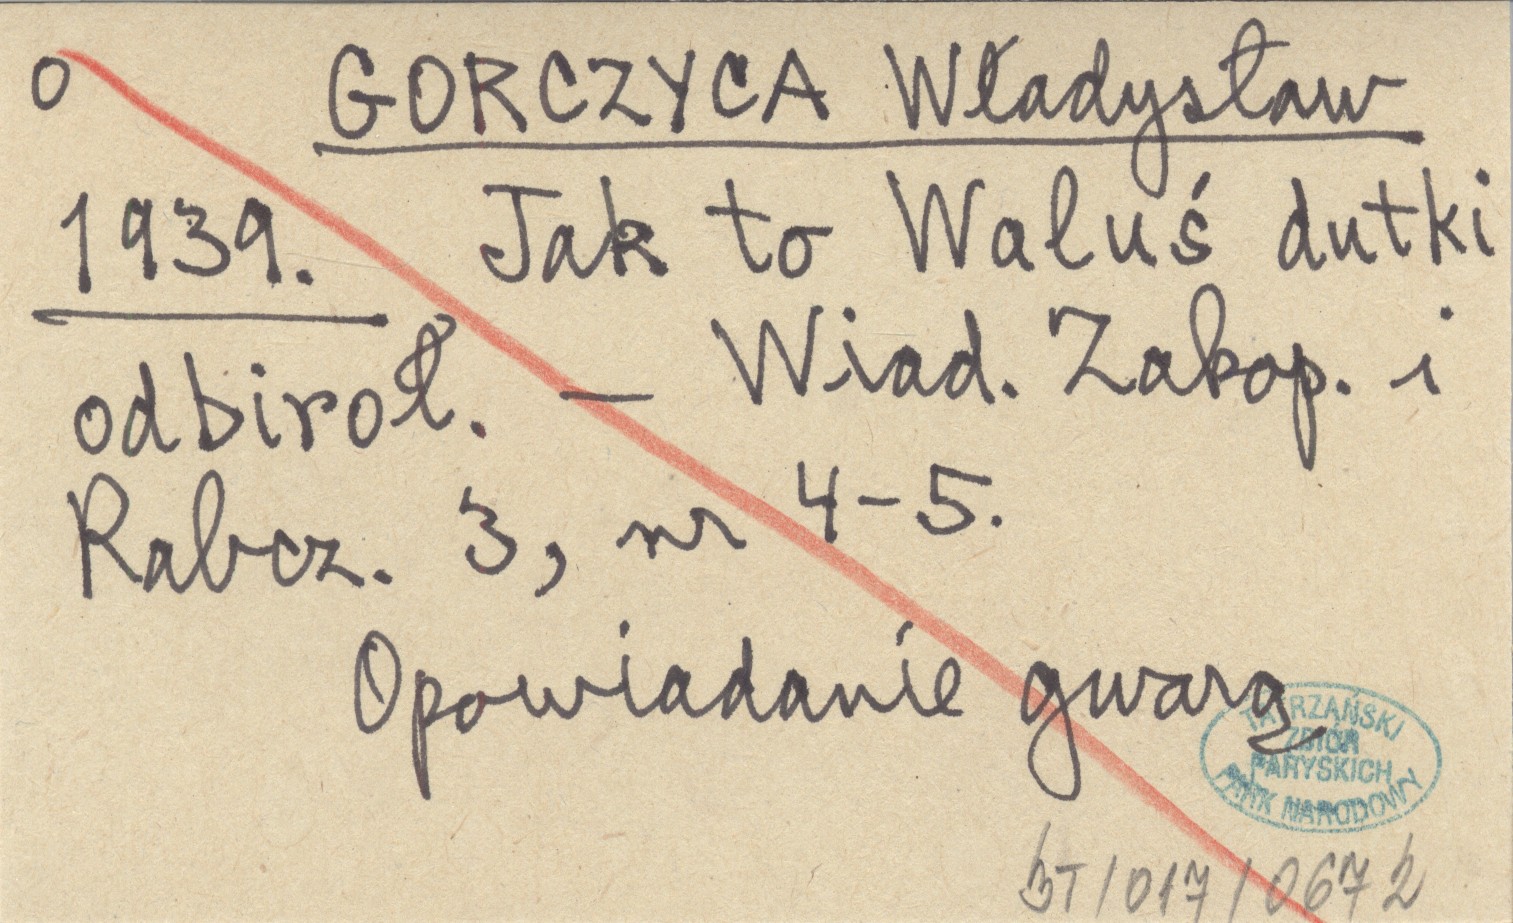 o GORCZYCA Władysław
1939. Jak to Waluś dutki
odbiroł. — Wiad. Zakop. i
Rabcz. 3, nr 4-5.
Opowiadanie gwarą
TATRZAŃSKI
ZBIÓR
PARYSKICH
PARK NARODOWY
BT/017/0672